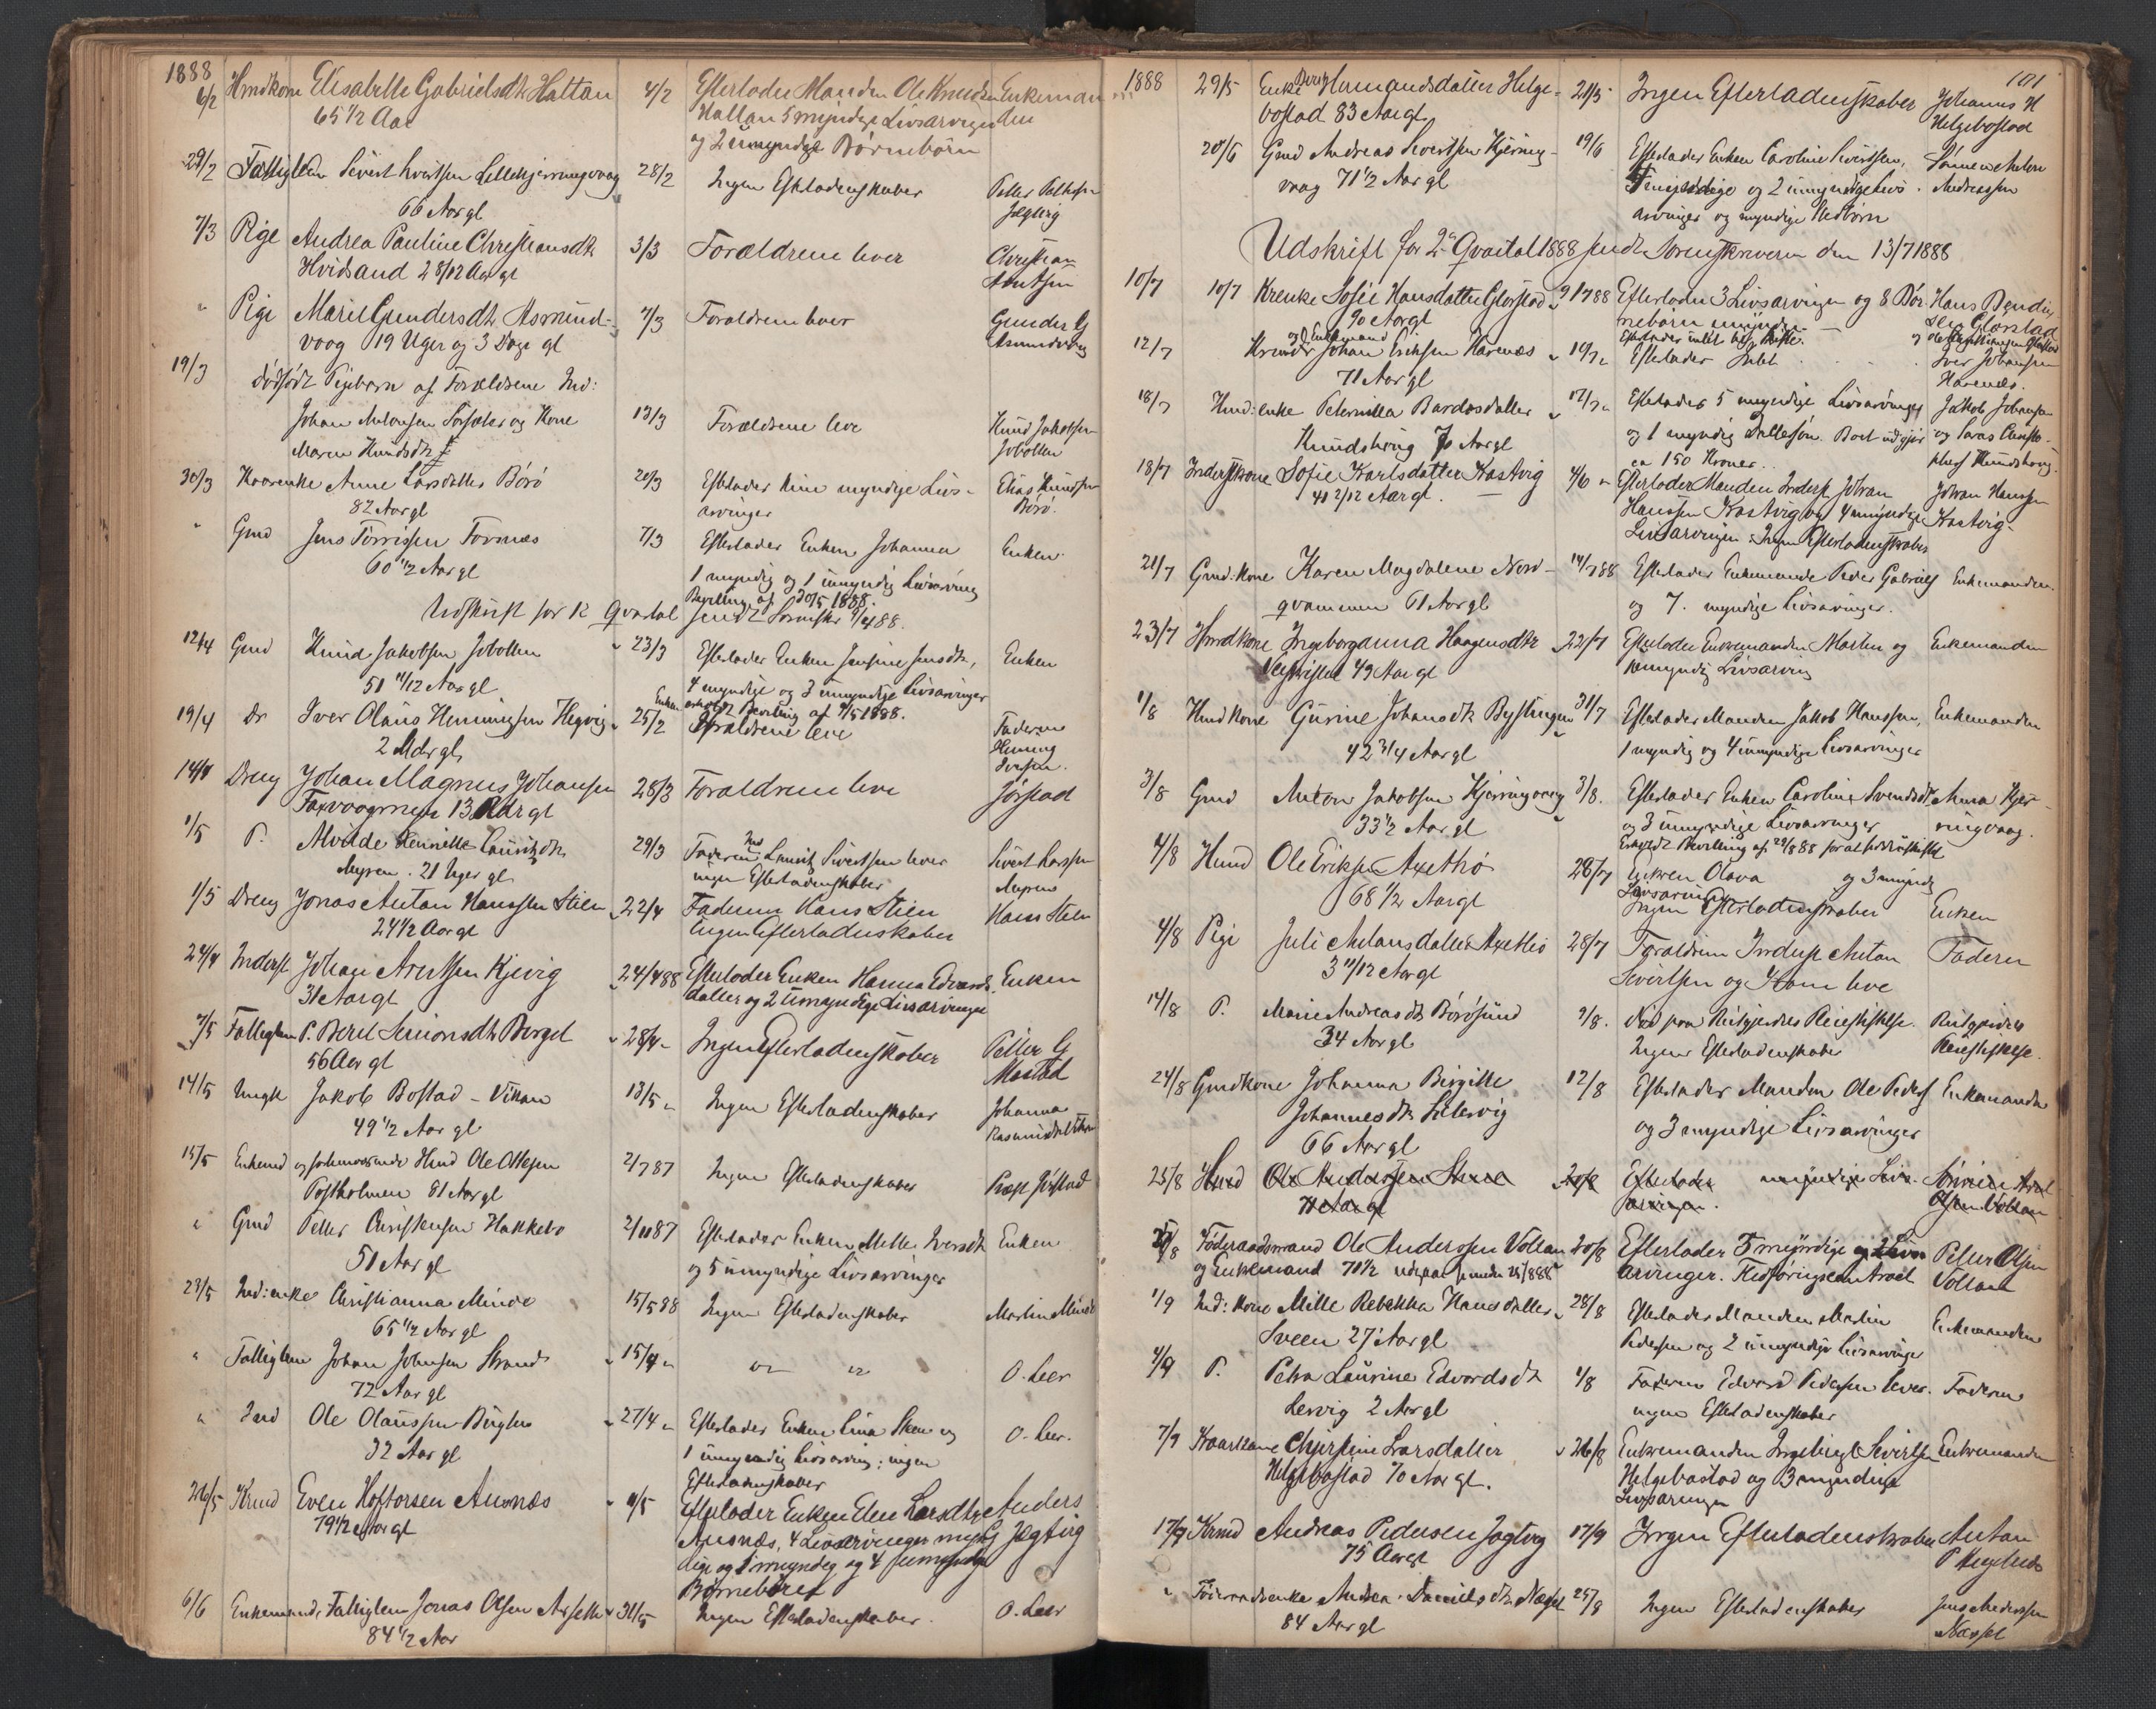 1888
6/2 Hmdkone Elisabeth Gabrielsdtr Hattan 4/2 Efterlader Manden Ole Knudsen Enkeman
65 1/2 Aar Hattan 5 myndige Livsarvinger den
og 2 umyndige Børnebørn
29/2 Fattiglem Sivert Lillekjerringvaag 28/2 Ingen Efterladenskaber Petter
66 Aar gl Jægtvig
7/3 Pige Andrea Pauline Christiansdtr 3/3 Forældrene lever Christian
Hvidsand 2 8/12 Aar gl Arntsen
" Pige Marie Gundersdtr Asmund- 7/3 Forældrene lever Gunder G
vaag 19 Uger og 3 Dage gl Asmundvaag
19/3 dødfødt Pigebarn af Forældrene Ind:
Johan Antonsen og Kone 13/3 Forældrene leve Knud Jakobsen
Maren Knudsdtr Jobotten
30/3 Kaarenke Anne Larsdatter Børø 20/3 Efterlader kun myndige Livs- Elias Knudsen
82 Aar gl arvinger Børø.
" Gmd Jens Torrissen Forsnes 7/3 Efterlader Enken Johanna Enken
60 1/2 Aar gl 1 myndig og 1 umyndig Livsarving
Bevilling af 30/5 1888.
Udskrift for 1ste Qvartal sendt Sorenskr 88.
12/4 Gmd Knud Jakobsen Jobotten " 23/3 Efterlader Enken Jensine Jensdtr, Enken
51 11/12 Aar gl 4 myndige og 3 umyndige Livsarvinger
Enken erholdt Bevilling af 1888.
19/4 Dr Iver Olaus Henningsen Hegvig " 25/2 Forældrene leve Faderen
2 Mdr gl Henning
Iversen.
14/4 Dreng Johan Magnus Johansen 28/3 Forældrene leve Jøstad
13 Mdr gl
1/5 P. Alvilde Henriette Lauritzdtr 29/3 Faderen Ind Lauritz Sivertsen lever Sivert Larssen
Myren . 21 Uger gl ingen Efterladenskaber Myren
1/5 Dreng Jonas Antan Hanssen Stien 22/4 Faderen Hans Stien Hans Stien
24 1/2 Aar gl Ingen Efterladenskaber
24/4 Inderst Johan Arentsen Kjevig 24/4 88 Efterlader Enken Hanna Edvards Enken
31 Aar gl datter og 2 umyndige Livsarvinger
7/5 Fattiglem P. Beret Simonsdtr Berget " 28/4 " Ingen Efterladenskaber Petter G
56 Aar gl Mostad
14/5 Ungk Jakob Bostad - Vikan 13/5 " Ingen Efterladenskaber Johanna
49 1/2 Aar gl
15/5 Enkemd og forhenværende Hmd Ole Ottesen 2/7 87 Ingen Efterladenskaber Præst Jøstad
Postholmen 81 Aar gl
" Gmd Petter Christensen Hakkebo 2/11 87 Efterlader Enken Mette Iversdtr Enken
51 Aar gl og 5 umyndige Livsarvinger
23/5 Ind: enke Christianna Minde 15/5 88 Ingen Efterladenskaber Martin Minde
65 1/2 Aar gl
" Fattiglem Johan Johnsen Strand " 15/4 " " " O. Leer
72 Aar gl
" Ind Ole Olaussen " 27/4 " Efterlader Enken Lina Skea og O. Leer.
32 Aar gl 1 umyndig Livsarving; ingen
Efterladenskaber
26/5 Krmd Even Hoftorsen Ausnæs " 9/5 Efterlader Enken Elen Larsdtr Anders
79 1/2 Aar gl Ausnæs, 4 Livsarvinger myn G Jægtvig
dige og 1 umyndig og 4 umyndige
Børnebørn
6/6 Enkemand, Fattiglem Jonas Olsen " 31/5 Ingen Efterladenskaber. O. Leer
84 1/2 Aar
101
1888 29/5 Enke Hermandsdatter Helge- 21/5 Ingen Efterladenskaber Johannes H
bostad 83 Aar gl. Helgebostad
20/6 Gmd Andreas Sivertsen Kjerring- 19/6 Efterlader Enken Caroline Sivertsen, Sønnen Anton
vaag 71 1/2 Aar gl myndige og 2 umyndige Livs- Andreassen
arvinger og myndige Stedbørn
Udskrift for 2det Qvartal 1888 sendt Sorenskriveren den 13/7 1888
10/7 10/7 Krenke Sofie Hansdatter Glørstad " 9/7 88 Efterlader 3 Livsarvinger og 8 Bør- Hans Bendig
90 Aar gl nebørn umyndige Glørstad
12/7 og Enkemand
Krmd Johan Eriksen Havenæs " 10/7 " Efterlader Intet Iver Johansen
71 Aar gl Havenæs.
18/7 Hmd: enke Peternilla Bardosdatter " 12/7 " Efterlader 5 myndige Livsarvinger Jakob Johansen
Knudshaug 70 Aar gl og 1 myndig Dattersøn. Boet udgjør og Lars Christo-
ca 150 Kroner. phers Knudshaug.
18/7 Inderstkone Sofie Karlsdatter Kastvig 4/6 " Efterlader Manden Inderst Johan Johan Hanssen
41 2/12 Aar gl. Hanssen Kastvig og 4 umyndige Kastvig
Livsarvinger. Ingen Efterladenskaber
21/7 Gmd: Kone Karen Magdalene Nord- 14/7 88 Efterlader Enkemanden Peder Gabriels Enkemanden
qvammen 61 Aar gl og 7. myndige Livsarvinger.
23/7 Hmdkone Ingeborganna Haagensdtr " 22/7 Efterlader Enkemanden Morten og Enkemanden
49 Aar gl umyndig Livsarving
1/8 Hmd kone Gurine Johansdtr Bystingen " 31/7 Efterlader Manden Jakob Hanssen, Enkemanden
42 3/4 Aar gl 1 myndig og 4 umyndige Livsarvinger
3/8 Gmd Anton Jakobsen Kjerringvaag 3/8. Efterlader Enken Caroline Svendsdtr Anna Kjer-
33 1/2 Aar gl og 3 umyndige Livsarvinger ringvaag.
Erholdt Bevilling af 88 for at hensidde i uskiftet
4/8 Hmd Ole Eriksen Axethø 28/7 Enken Olava og 3 myndige
68 1/2 Aar gl Livsarvinger
Ingen Efterladenskaber Enken
4/8 Pige Juli Antonsdatter Axethø 28/7 Forældrene Inderst Antan Faderen
3 11/12 Aar gl Sivertsen og Kone leve
14/8 P. Marie Andreasdtr Børøsund 9/8. Død paa Reitgjerdets Pleiestiftelse. Reitgjerdets
34 Aar gl Ingen Efterladenskaber Pleiestiftelse.
24/8 Gmdkone Johanna Birgitte 12/8 Efterlader Manden Ole Peders Enkemanden
Johannesdtr og 3 myndige Livsarvinger
66 Aar gl
25/8 Hmd Ole Anderssen 20/8 Efterlader myndige Livs-
71 Aar gl arvinger. Olsen Voltan
25/8 Føderaadsmand Ole Anderssen Voltan 20/8 Efterlader 5 myndige Livs Peter Olsen
og Enkemand 70 1/2 arvinger. Voltan
1/9 Ind: Kone Mille Rebekka Hansdatter " 28/8 Efterlader Manden Martin Enkemanden
Sveen 27 Aar gl Pedersen og 2 umyndige Livsarvinge
4/9 P. Petra Laurine Edvardsdtr 4/8 Faderen Edvard Pedersen lever. Faderen
Lervig 2 Aar gl ingen Efterladenskaber
7/9 Kaarkone Chjerstine Larsdatter " 26/8 Enkemanden Ingebrigt Sivertsen Enkemanden
Helgebostad 70 Aar gl. Helgebostad og 3 myndige
Livsarvinger
17/9 Krmd Andreas Pedersen Jægtvig 17/9 Ingen Efterladenskaber Antan
75 Aar gl
" Føderaadsenke Andrea Danielsdtr Næsset 25/8 Ingen Efterladenskaber Jens Anderssen
84 Aar gl Næsset